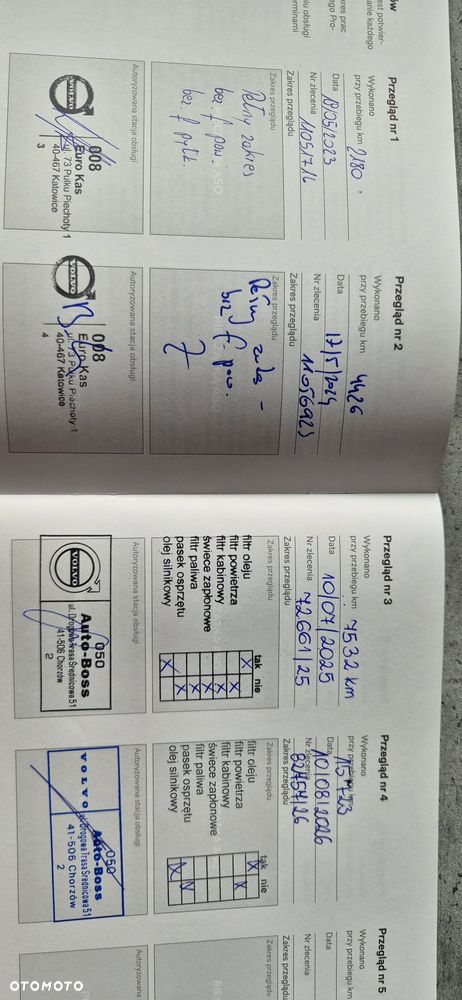 ów
est potwier-
anie każdego
kres prac
ego Pro-
lu obsługi
erminami
Przegląd nr 1
Wykonano
przy przebiegu km 2180
Data 18/05/2023
Nr zlecenia 1105/1716
Zakres przeglądu
Zakres przeglądu
Pełny zakres
bez f. pow.
bez f. pyłk.
Autoryzowana stacja obsługi
VOLVO
008
Euro Kas
ul. 73 Pułku Piechoty 1
40-467 Katowice
3
Przegląd nr 2
Wykonano
przy przebiegu km 4426
Data 17/5/2024
Nr zlecenia 11056925
Zakres przeglądu
Zakres przeglądu
Pełny zakres -
bez f. pow.
Autoryzowana stacja obsługi
VOLVO
008
Euro Kas
ul. 73 Pułku Piechoty 1
40-467 Katowice
4
Przegląd nr 3
Wykonano
przy przebiegu km 7532 km
Data 10/07/2025
Nr zlecenia 72661/25
Zakres przeglądu
Zakres przeglądu
tak nie
filtr oleju X
filtr powietrza X
filtr kabinowy X
świece zapłonowe X
filtr paliwa X
pasek osprzętu X
olej silnikowy X
Autoryzowana stacja obsługi
VOLVO
050
Auto-Boss
ul. Drogowa Trasa Średnicowa 51
41-506 Chorzów
2
Przegląd nr 4
Wykonano
przy przebiegu km
Data
Nr zlecenia 82457/26
Zakres przeglądu
Zakres przeglądu
tak nie
filtr oleju X
filtr powietrza X
filtr kabinowy
świece zapłonowe
filtr paliwa
pasek osprzętu X
olej silnikowy X
Autoryzowana stacja obsługi
VOLVO
050
Auto-Boss
ul. Drogowa Trasa Średnicowa 51
41-506 Chorzów
2
Przegląd nr 5
Wykonano
przy przebiegu km
Data
Nr zlecenia
Zakres przeglądu
Zakres przeglądu
Autoryzowana sta
OTOMOTO